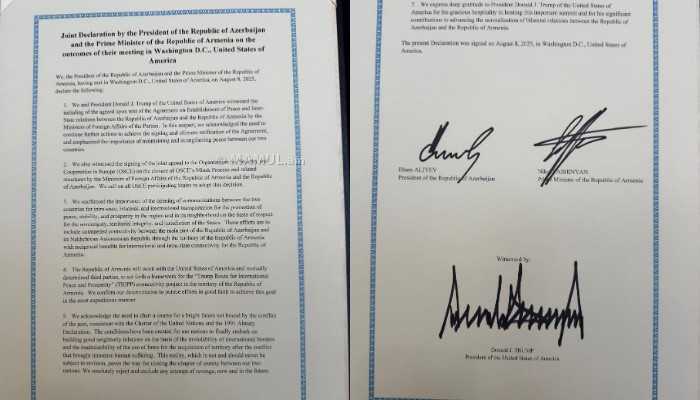 Joint Declaration by the President of the Republic of Azerbaijan
and the Prime Minister of the Republic of Armenia on the
outcomes of their meeting in Washington D.C., United States of
America
We, the President of the Republic of Azerbaijan and the Prime Minister of the Republic of
Armenia, having met in Washington D.C., United States of America, on August 8, 2025,
declare the following:
1. We and President Donald J. Trump of the United States of America witnessed the
initialing of the agreed upon text of the Agreement on Establishment of Peace and Inter-
State relations between the Republic of Azerbaijan and the Republic of Armenia by the
Ministers of Foreign Affairs of the Parties. In this respect, we acknowledged the need to
continue further actions to achieve the signing and ultimate ratification of the Agreement,
and emphasized the importance of maintaining and strengthening peace between our two
countries.
2. We also witnessed the signing of the joint appeal to the Organization for Security and
Cooperation in Europe (OSCE) on closure of OSCE's Minsk Process and related
structures by the Ministers of Foreign Affairs of the Republic of Armenia and the Republic
of Azerbaijan. We call on all OSCE participating States to adopt this decision.
MAMUL.am
3. We reaffirmed the importance of the opening of communications between the two
countries for intra-state, bilateral, and international transportation for the promotion of
peace, stability, and prosperity in the region and in its neighborhood on the basis of respect
for the sovereignty, territorial integrity, and jurisdiction of the States. These efforts are to
include unimpeded connectivity between the main part of the Republic of Azerbaijan and
its Nakhchivan Autonomous Republic through the territory of the Republic of Armenia
with reciprocal benefits for international and intra-state connectivity for the Republic of
Armenia.
4. The Republic of Armenia will work with the United States of America and mutually
determined third parties, to set forth a framework for the "Trump Route for International
Peace and Prosperity" (TRIPP) connectivity project in the territory of the Republic of
Armenia. We confirm our determination to pursue efforts in good faith to achieve this goal
in the most expeditious manner.
5. We acknowledge the need to chart a course for a bright future not bound by the conflict
of the past, consistent with the Charter of the United Nations and the 1991 Almaty
Declaration. The conditions have been created for our nations to finally embark on
building good neighborly relations on the basis of the inviolability of international borders
and the inadmissibility of the use of force for the acquisition of territory after the conflict
that brought immense human suffering. This reality, which is not and should never be
subject to revision, paves the way for closing the chapter of enmity between our two
nations. We resolutely reject and exclude any attempt of revenge, now and in the future.
7. We express deep gratitude to President Donald J. Trump of the United States of
America for his gracious hospitality in hosting this important summit and for his significant
contribution to advancing the normalization of bilateral relations between the Republic of
Azerbaijan and the Republic of Armenia.
The present Declaration was signed on August 8, 2025, in Washington D.C., United States of
America.
Ilham ALIYEV
President of the Republic of Azerbaijan
PASHINYAN
Prime Minister of the Republic of Armenia
Witnessed by:
Donald J. TRUMP
President of the United States of America